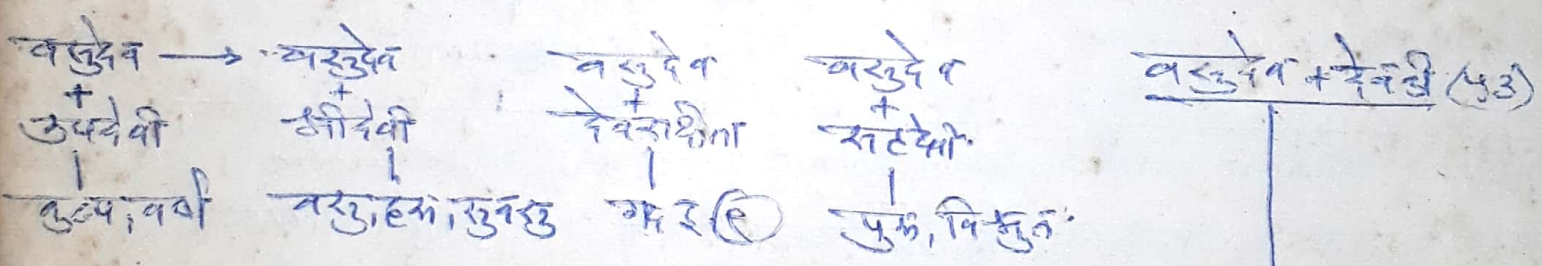 वसुदेव → वसुदेव वसुदेव वसुदेव वसुदेव + देवकी (५३)
+ + + +
उपदेवी श्रीदेवी देवरक्षिता सहदेवी
वसु, हंस, सुवसु गद इ ९ पुरु, विश्रुत